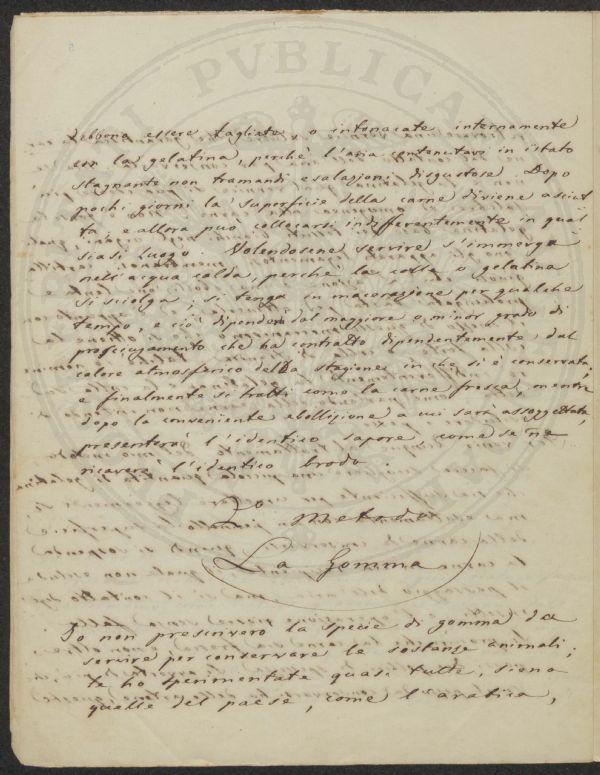 debbono essere tagliate o intonacate internamente
con la gelatina, perchè l'aria contenutavi in istato
stagnante non tramandi esalazioni disgustose. Dopo
pochi giorni la superficie della carne diviene asciut
ta, e allora può collocarsi indifferentemente in qual
siasi luogo. Volendosene servire s'immerga
nell'acqua calda, perchè la colla o gelatina
si sciolga, si tenga in macerazione per qualche
tempo, e ciò dipenderà dal maggiore o minor grado di
prosciugamento che ha contratto dipendentemente dal
calore atmosferico della stagione in che si è conservata;
e finalmente si tratti come la carne fresca, mentre
dopo la conveniente ebollizione a cui sarà assoggettata,
presenterà l'identico sapore, come se ne
ricaverà l'identico brodo.
2º Metodo
La Gomma
Io non prescrivero la specie di gomma da
servire per conservare le sostanze animali;
te ho sperimentate quasi tutte, sieno
quelle del paese, come l'arabica,